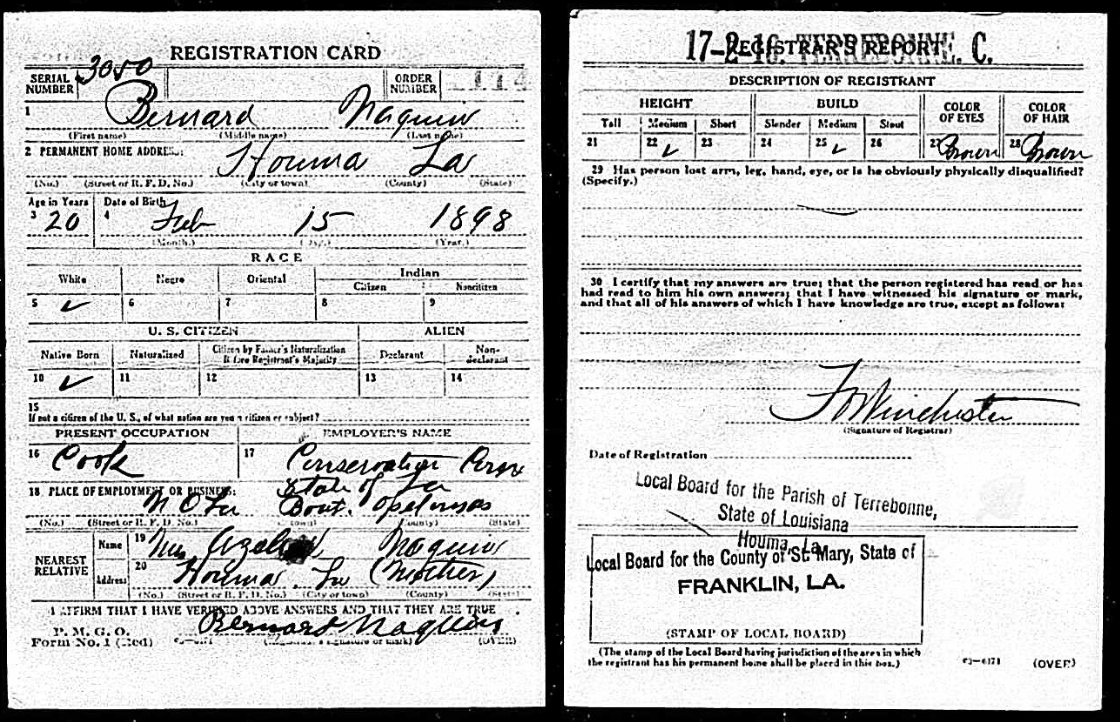 REGISTRATION CARD
SERIAL NUMBER 3050 ORDER NUMBER
1 Bernard Naquin
(First name) (Middle name) (Last name)
2 PERMANENT HOME ADDRESS: Houma La
(No.) (Street or R. F. D. No.) (City or town) (County) (State)
Age in Years Date of Birth
3 20 4 Feb 15 1898
(Month.) (Day.) (Year.)
RACE
White Negro Oriental Indian
Citizen Noncitizen
5 ✓ 6 7 8 9
U. S. CITIZEN ALIEN
Native Born Naturalized Citizen by Father's Naturalization Before Registrant's Majority Declarant Non-declarant
10 ✓ 11 12 13 14
15
If not a citizen of the U. S., of what nation are you a citizen or subject?
PRESENT OCCUPATION EMPLOYER'S NAME
16 Cook 17 Conservation
State of La
18 PLACE OF EMPLOYMENT OR BUSINESS: N O La Boat. Opelousas
(No.) (Street or R. F. D. No.) (City or town) (County) (State)
NEAREST RELATIVE Name 19 Mrs Naquin
Address 20 Houma La (Mother)
(No.) (Street or R. F. D. No.) (City or town) (County) (State)
I AFFIRM THAT I HAVE VERIFIED ABOVE ANSWERS AND THAT THEY ARE TRUE
P. M. G. O.
Form No. 1 (Red) Bernard Naquin
(Registrant's signature or mark) (OVER)
17-2-16. TERREBONNE. C.
REGISTRAR'S REPORT
DESCRIPTION OF REGISTRANT
HEIGHT BUILD COLOR OF EYES COLOR OF HAIR
Tall Medium Short Slender Medium Stout
21 22 ✓ 23 24 25 ✓ 26 27 Brown 28 Brown
29 Has person lost arm, leg, hand, eye, or is he obviously physically disqualified?
(Specify.)
30 I certify that my answers are true; that the person registered has read or has
had read to him his own answers; that I have witnessed his signature or mark,
and that all of his answers of which I have knowledge are true, except as follows:
Winchester
(Signature of Registrar)
Date of Registration
Local Board for the Parish of Terrebonne,
State of Louisiana
Houma, La.
Local Board for the County of St. Mary, State of
FRANKLIN, LA.
(STAMP OF LOCAL BOARD)
(The stamp of the Local Board having jurisdiction of the area in which
the registrant has his permanent home shall be placed in this box.)
03-6171 (OVER)